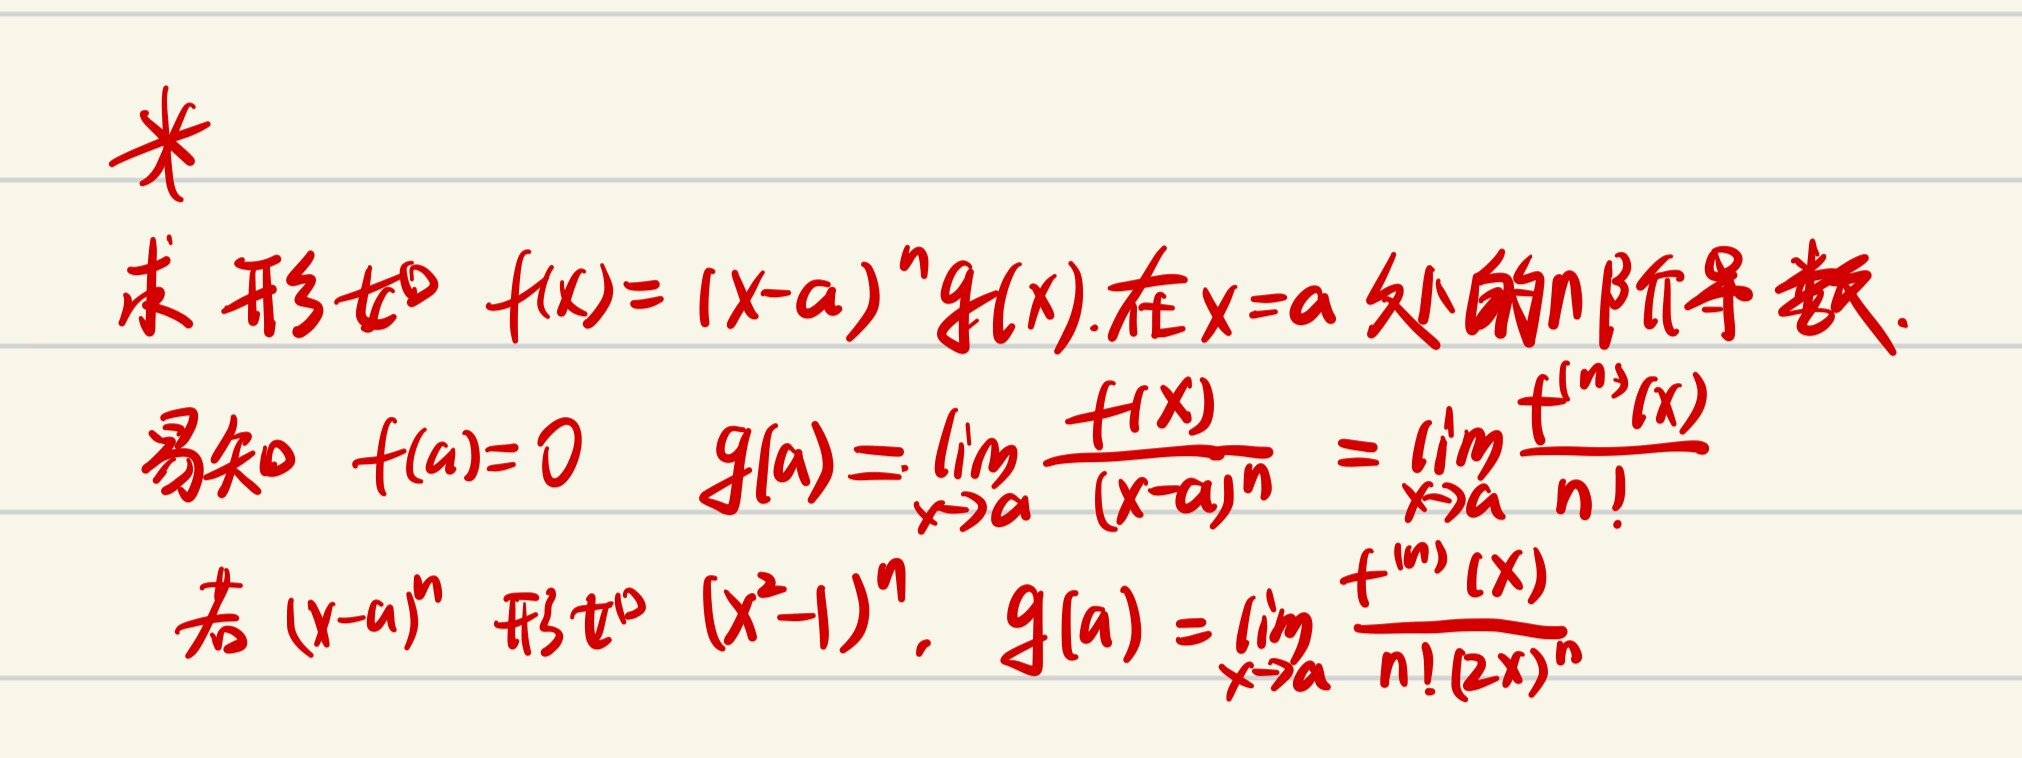 *
求形如 f(x)=(x-a)^n g(x).在x=a处的n阶导数.
易知 f(a)=0 g(a)=lim_{x→a} f(x)/(x-a)^n = lim_{x→a} f^{(n)}(x)/n!
若 (x-a)^n 形如 (x^2-1)^n. g(a)=lim_{x→a} f^{(n)}(x)/n!(2x)^n